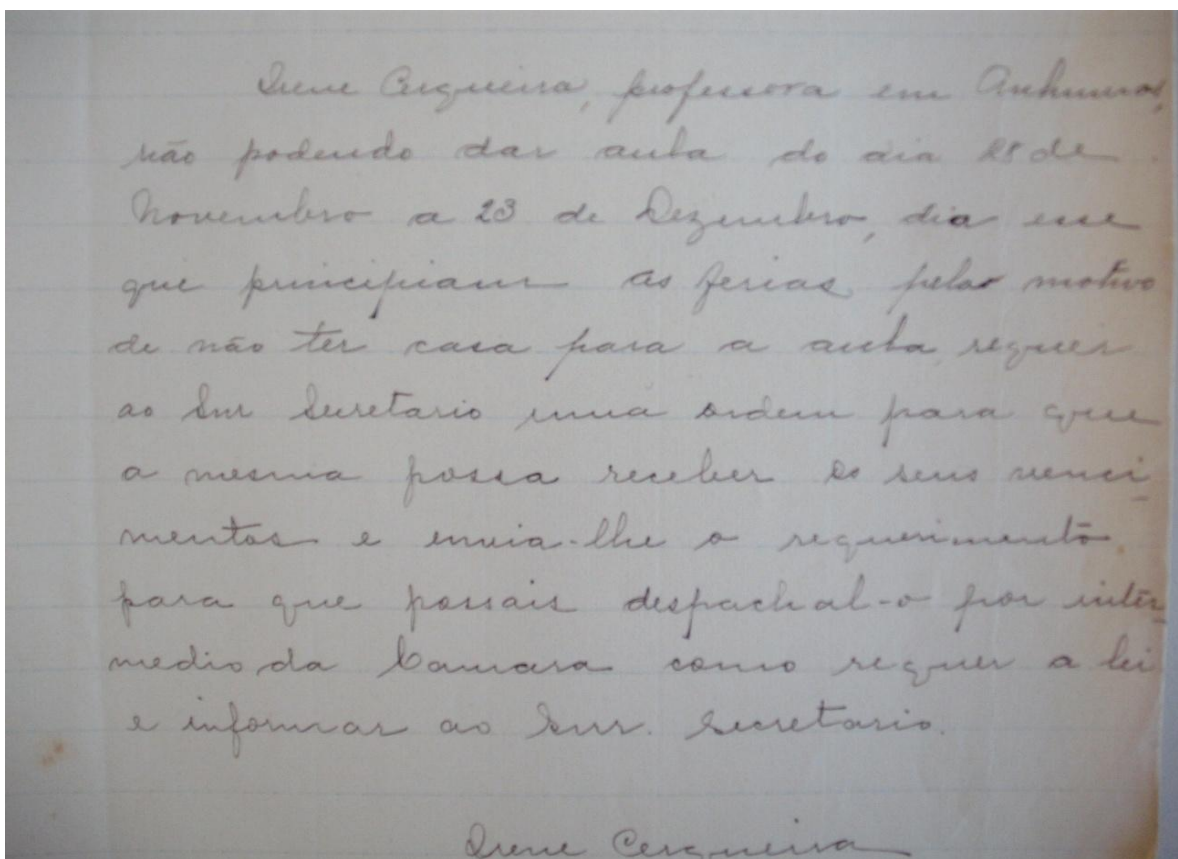 Irene Cerqueira, professora em Anhumas,
não podendo dar aula do dia 28 de
Novembro a 23 de Dezembro, dia esse
que principiam as ferias pelo motivo
de não ter casa para a aula, requer
ao Snr Secretario uma ordem para que
a mesma possa receber os seus venci-
mentos e envia-lhe o requerimento
para que possais despachal-o por inter-
medio da Camara como requer a lei
e informar ao Snr. Secretario.
Irene Cerqueira